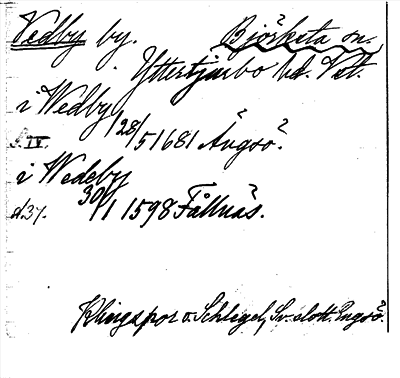 Vedby by. Björksta sn.
Yttertjurbo hd. Vst.
i Wedby
28/5 1681 Ängsö.
s. IV.
i Wedeby
d. 37. 30/1 1598 Fållnäs.
Klingspor o. Schlegel, Sv. slott. Engsö.